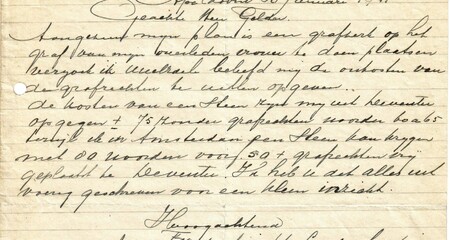 Geachte Heer Gelder.
Aangezien mijn plan is een grafzerk op het
graf van mijn overleden vrouw te doen plaatsen
verzoek ik UwEd beleefd mij de onkosten van
de grafrechten te willen opgeven..
de kosten van een steen zijn mij uit Deventer
opgegeven ± 75 zonder grafrechten woorden 60 a 65
terwijl ik in Amsterdam een steen kan krijgen
met 80 woorden voor 50 + grafrechten vrij
geplaatst te Deventer. Ik heb U dit alles uit
voerig geschreven voor een klein inzicht.
Hoogachtend